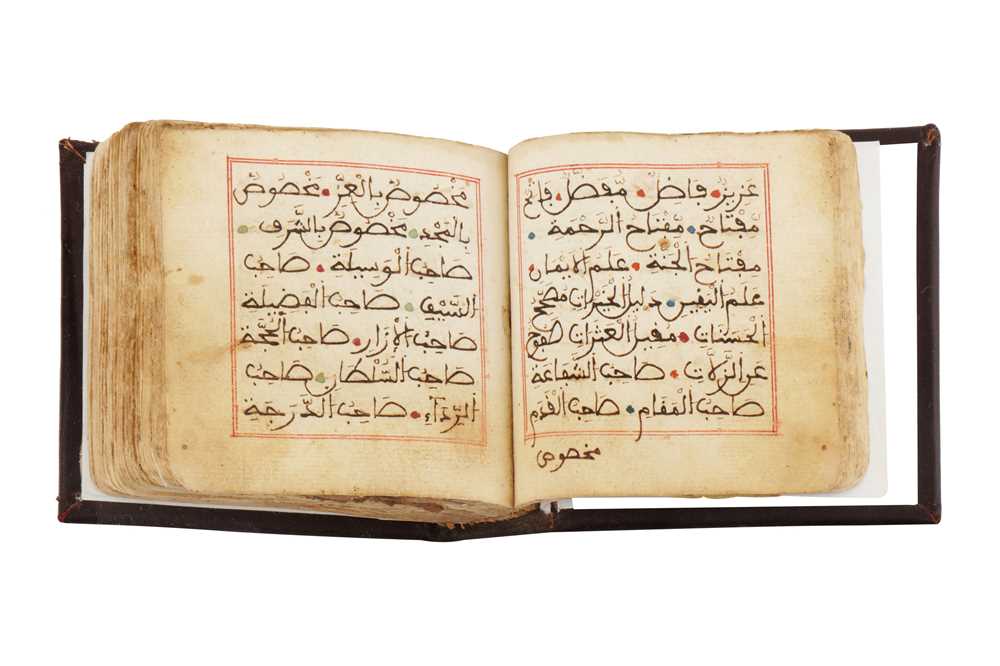 عَزِيزٌ فَاضِلٌ مُفَضَّلٌ فَاتِحٌ
مِفْتَاحٌ مِفْتَاحُ الرَّحْمَةِ
مِفْتَاحُ الْجَنَّةِ عَلَمُ الْإِيمَانِ
عَلَمُ الْيَقِينِ دَلِيلُ الْخَيْرَاتِ مُصَحِّحُ
الْحَسَنَاتِ مُقِيلُ الْعَثَرَاتِ صَفُوحٌ
عَنِ الزَّلَّاتِ صَاحِبُ الشَّفَاعَةِ
صَاحِبُ الْمَقَامِ صَاحِبُ الْقَدَمِ
مخصوص
مَخْصُوصٌ بِالْعِزِّ مَخْصُوصٌ
بِالْمَجْدِ مَخْصُوصٌ بِالشَّرَفِ
صَاحِبُ الْوَسِيلَةِ صَاحِبُ
السَّيْفِ صَاحِبُ الْفَضِيلَةِ
صَاحِبُ الْإِزَارِ صَاحِبُ الْحُجَّةِ
صَاحِبُ السُّلْطَانِ صَاحِبُ
الرِّدَاءِ صَاحِبُ الدَّرَجَةِ